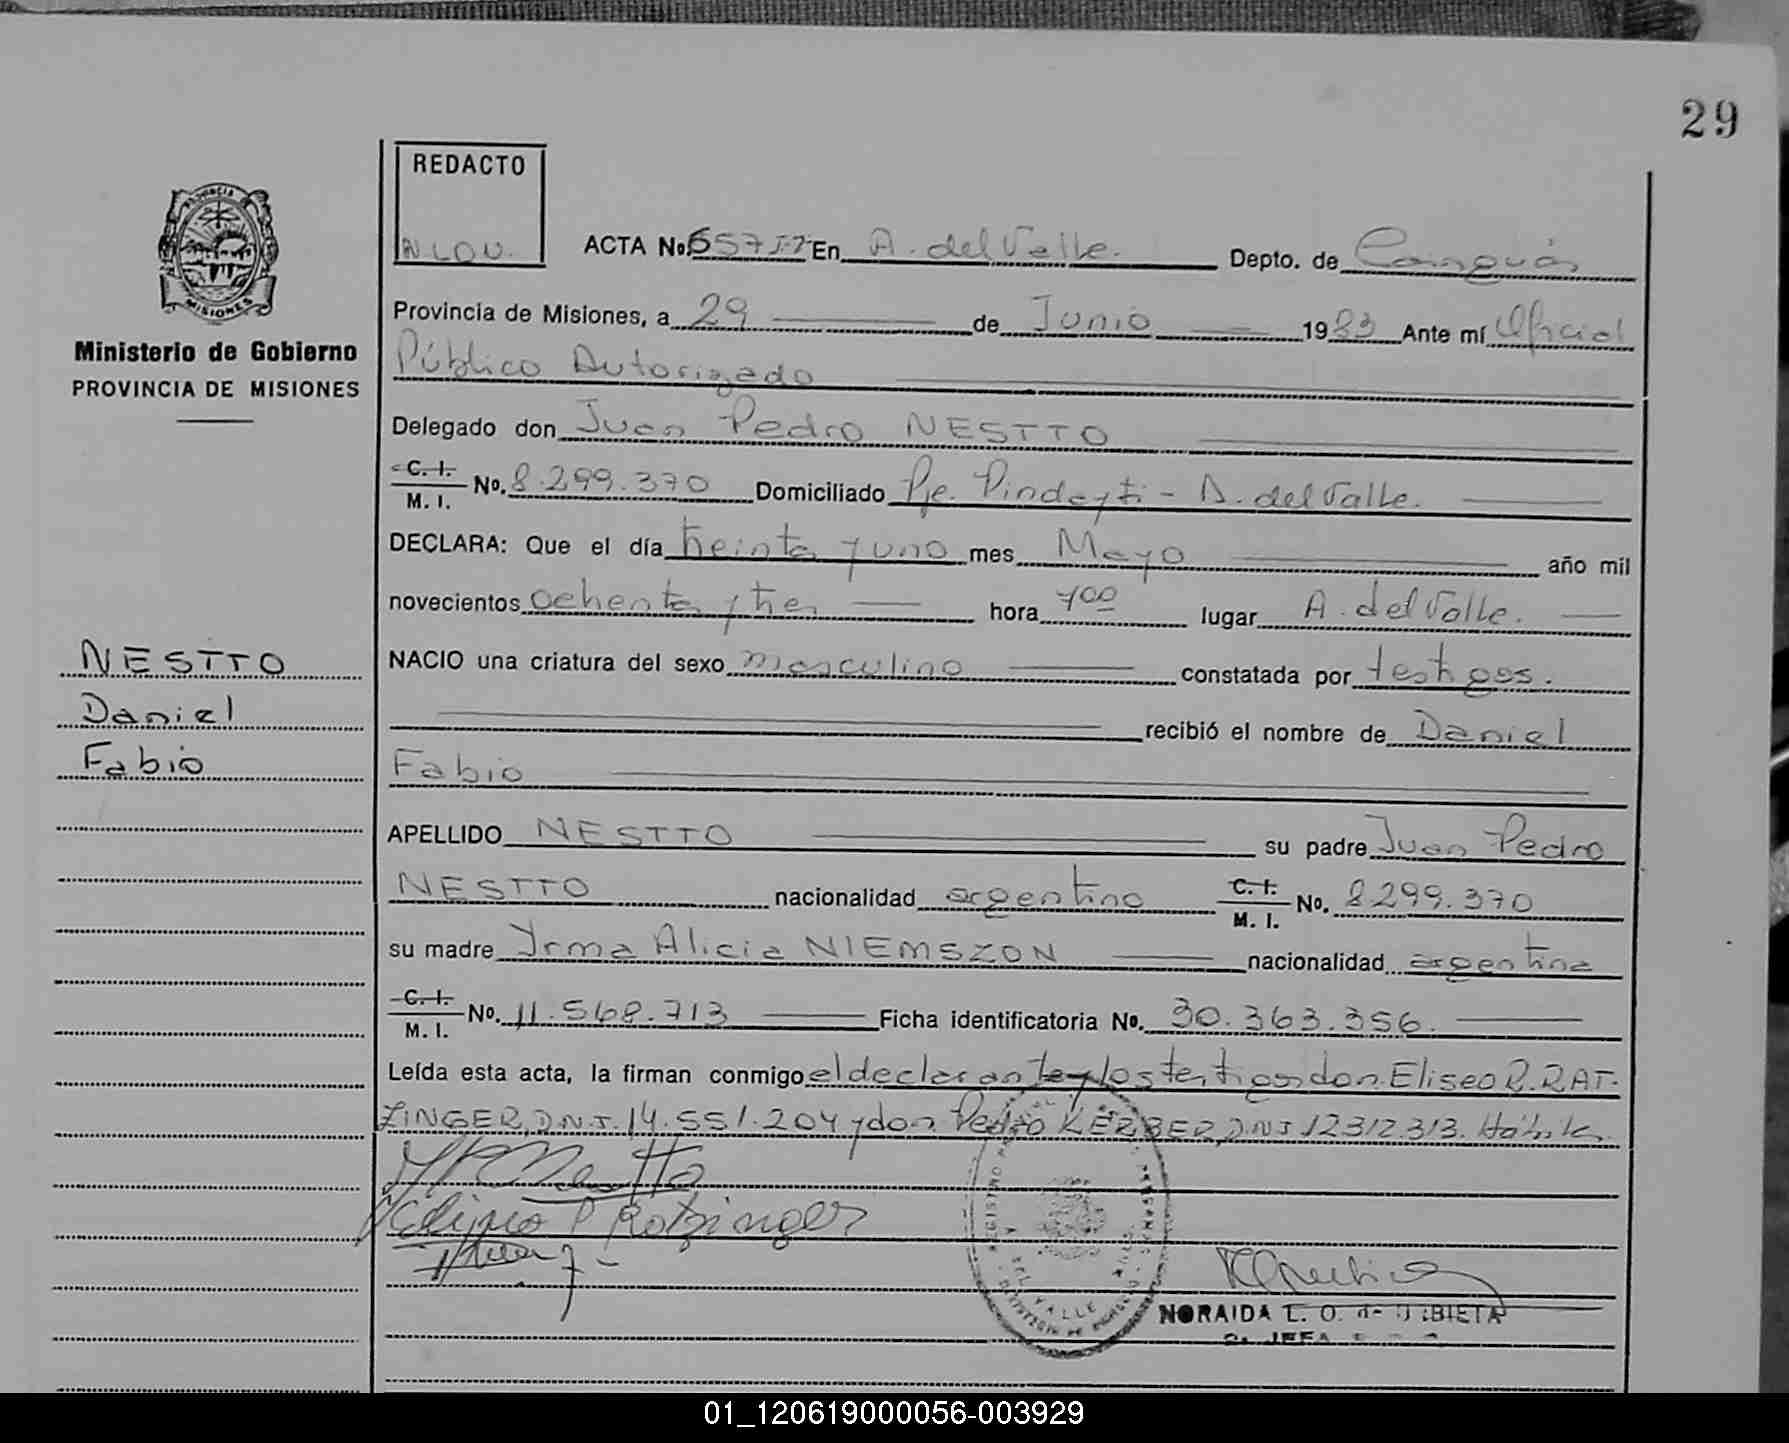 29
REDACTO
N.L.O.U.
PROVINCIA
MISIONES
Ministerio de Gobierno
PROVINCIA DE MISIONES
ACTA No. En A. del Valle. Depto. de Cainguás
Provincia de Misiones, a 29 de Junio 1983 Ante mí Oficial
Público Autorizado
Delegado don Juan Pedro NESTTO
C. I.
M. I. No. 8.299.370 Domiciliado Pje. Pindayti - A. del Valle.
DECLARA: Que el día treinta y uno mes Mayo año mil
novecientos ochenta y tres hora 4°° lugar A. del Valle.
NACIO una criatura del sexo masculino constatada por testigos.
recibió el nombre de Daniel
Fabio
NESTTO
Daniel
Fabio
APELLIDO NESTTO su padre Juan Pedro
NESTTO nacionalidad argentino C. I. M. I. No. 8.299.370
su madre Yrma Alicia NIEMSZON nacionalidad argentina
C. I.
M. I. No. 11.568.713 Ficha identificatoria No. 30.363.356.
Leída esta acta, la firman conmigo el declarante y los testigos don Eliseo R. RAT-
ZINGER, D.N.I. 14.551.204 y don Pedro KERBER, DNI 12312.313. Hábiles
NORAIDA L. O. de URBIETA
01_120619000056-003929